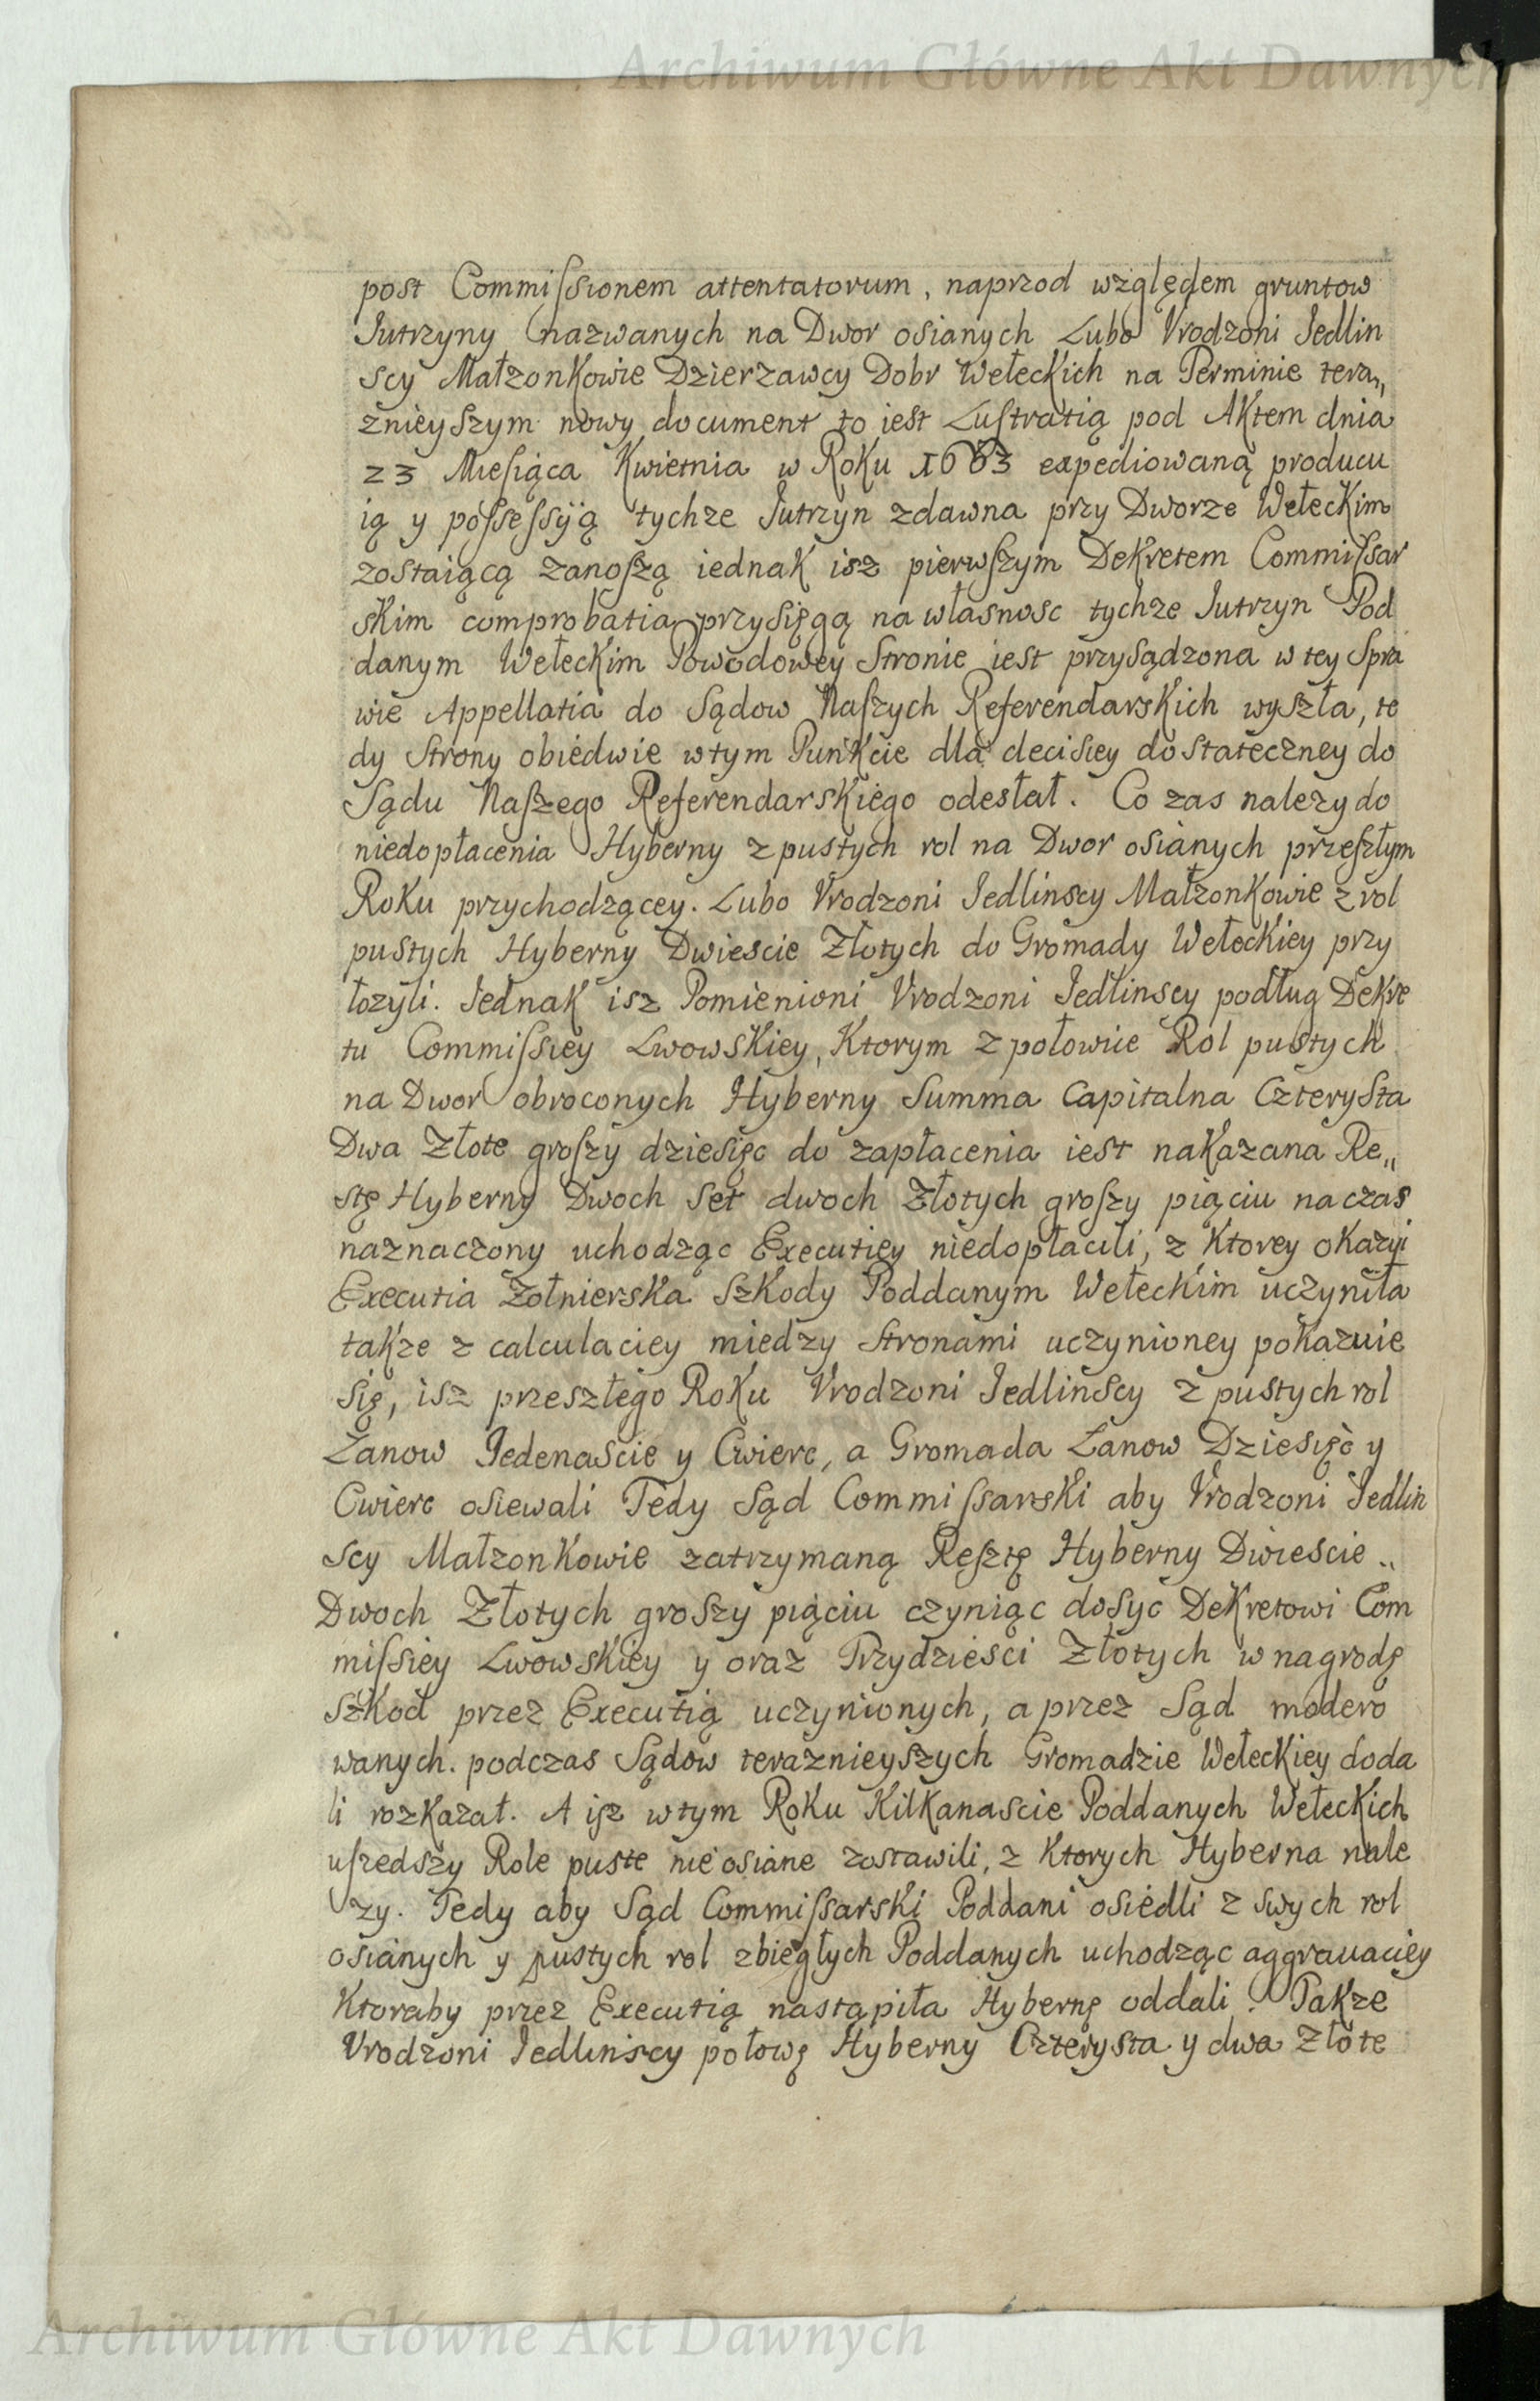 Archiwum Główne Akt Dawnych
post Commissionem attentatorum, naprzod względem gruntow
Jutrzyny nazwanych na Dwor osianych Lubo Vrodzoni Jedlin
scy Małzonkowie Dzierzawcy Dobr Wełeckich na Terminie tera„
znieyszym nowy document to iest Lustratią pod Aktem dnia
23 Miesiąca Kwietnia w Roku 1663 expediowaną producu
ią y possessyią tychze Jutrzyn zdawna przy Dworze Wełeckim
zostaiącą zanoszą iednak isz pierwszym Dekretem Commissar
skim comprobatia przysięgą na własnosc tychze Jutrzyn Pod
danym Wełeckim Powodowey Stronie iest przysądzona w tey Spra
wie Appellatia do Sądow Naszych Referendarskich wyszła, te
dy Strony obiedwie w tym Punkcie dla decisiey dostateczney do
Sądu Naszego Referendarskiego odesłał. Co zas nalezy do
niedopłacenia Hyberny z pustych rol na Dwor osianych przeszłym
Roku przychodzącey. Lubo Vrodzoni Jedlinscy Małzonkowie z rol
pustych Hyberny Dwiescie Złotych do Gromady Wełeckiey przy
łozyli. Jednak isz Pomienioni Vrodzoni Jedlinscy podług Dekre
tu Commissiey Lwowskiey, Ktorym z połowice Rol pustych
na Dwor obroconych Hyberny Summa Capitalna Czterysta
Dwa Złote groszy dziesięc do zapłacenia iest nakazana Re„
stę Hyberny Dwoch Set dwoch Złotych groszy piąciu na czas
naznaczony uchodząc Executiey niedopłacili, z Ktorey okazyi
Executia Zołnierska Szkody Poddanym Wełeckim uczyniła
takze z calculaciey miedzy Stronami uczynioney pokazuie
się, isz przeszłego Roku Vrodzoni Jedlinscy z pustych rol
Łanow Jedenascie y Cwierc, a Gromada Łanow Dziesięc y
Cwierc osiewali Tedy Sąd Commissarski aby Vrodzoni Jedlin
scy Małzonkowie zatrzymaną Resztę Hyberny Dwiescie „
Dwoch Złotych groszy piąciu czyniąc dosyc Dekretowi Com
missiey Lwowskiey y oraz Trzydziesci Złotych w nagrodę
Szkod przez Executią uczynionych, a przez Sąd modero
wanych. podczas Sądow teraznieyszych Gromadzie Wełeckiey doda
li rozkazał. A isz w tym Roku Kilkanascie Poddanych Wełeckich
uszedszy Role puste nie osiane zostawili, z Ktorych Hyberna nale
zy. Tedy aby Sąd Commissarski Poddani osiedli z swych rol
osianych y pustych rol zbiegłych Poddanych uchodząc aggrauaciey
Ktoraby przez Executią nastąpiła Hybernę oddali. Takze
Vrodzoni Jedlinscy połowę Hyberny Czterysta y dwa Złote
Archiwum Główne Akt Dawnych